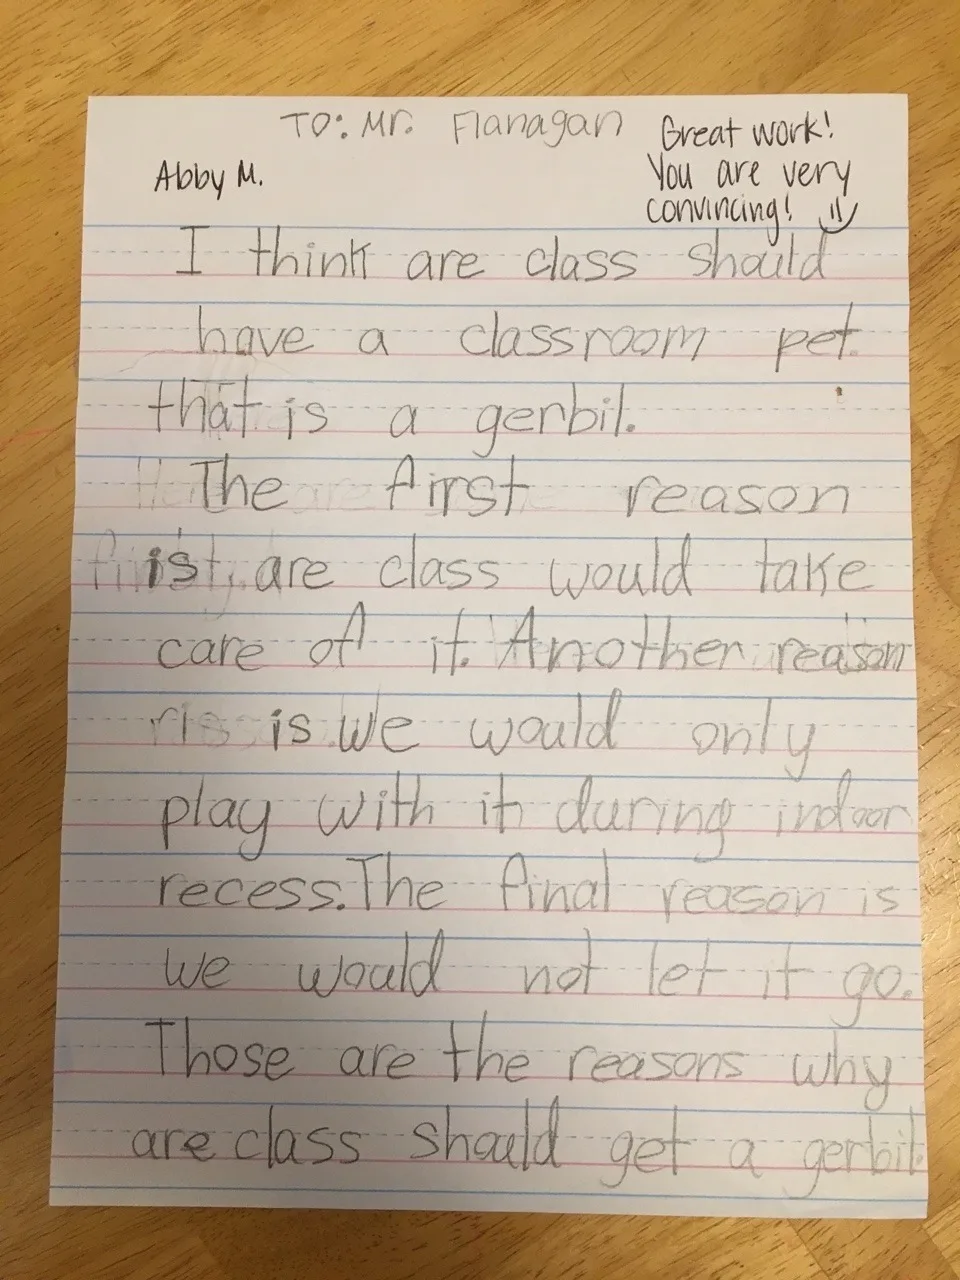 TO: Mr. Flanagan
Great work!
You are very
convincing!
Abby M.
I think are class should
have a classroom pet.
that is a gerbil.
The first reason
is are class would take
care of it. Another reason
is we would only
play with it during indoor
recess. The final reason is
we would not let it go.
Those are the reasons why
are class should get a gerbil.